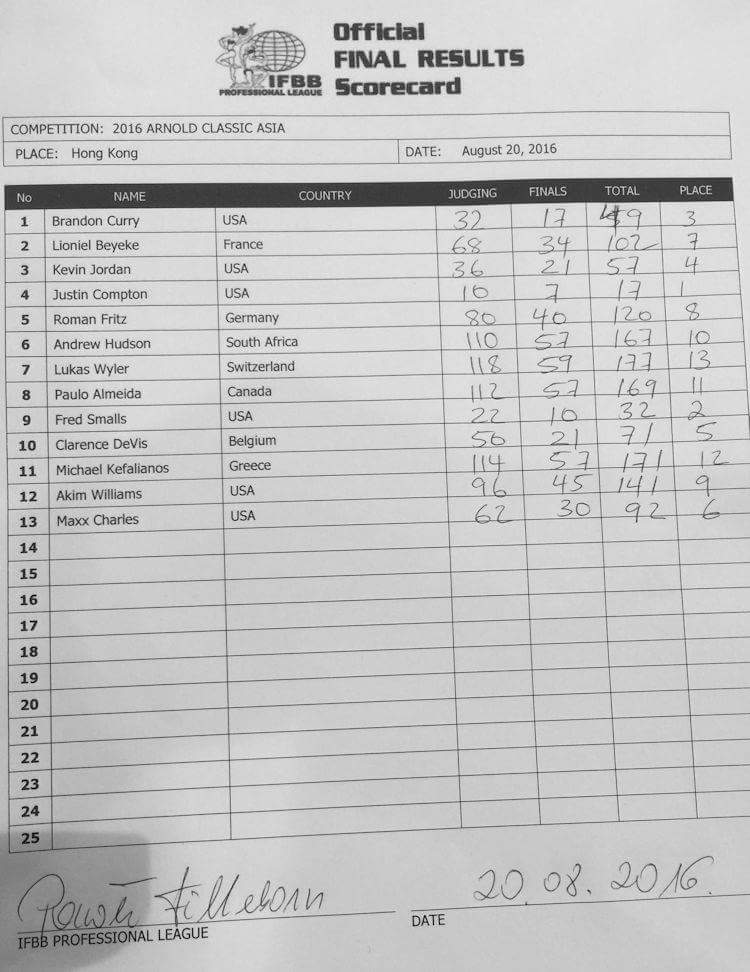 Official
FINAL RESULTS
Scorecard
IFBB
PROFESSIONAL LEAGUE
COMPETITION: 2016 ARNOLD CLASSIC ASIA
PLACE: Hong Kong DATE: August 20, 2016
No NAME COUNTRY JUDGING FINALS TOTAL PLACE
1 Brandon Curry USA 32 17 49 3
2 Lioniel Beyeke France 68 34 102 7
3 Kevin Jordan USA 36 21 57 4
4 Justin Compton USA 10 7 17 1
5 Roman Fritz Germany 80 40 120 8
6 Andrew Hudson South Africa 110 57 167 10
7 Lukas Wyler Switzerland 118 59 177 13
8 Paulo Almeida Canada 112 57 169 11
9 Fred Smalls USA 22 10 32 2
10 Clarence DeVis Belgium 50 21 71 5
11 Michael Kefalianos Greece 114 57 171 12
12 Akim Williams USA 96 45 141 9
13 Maxx Charles USA 62 30 92 6
14
15
16
17
18
19
20
21
22
23
24
25
Paweł Filleborn 20.08.2016.
IFBB PROFESSIONAL LEAGUE DATE